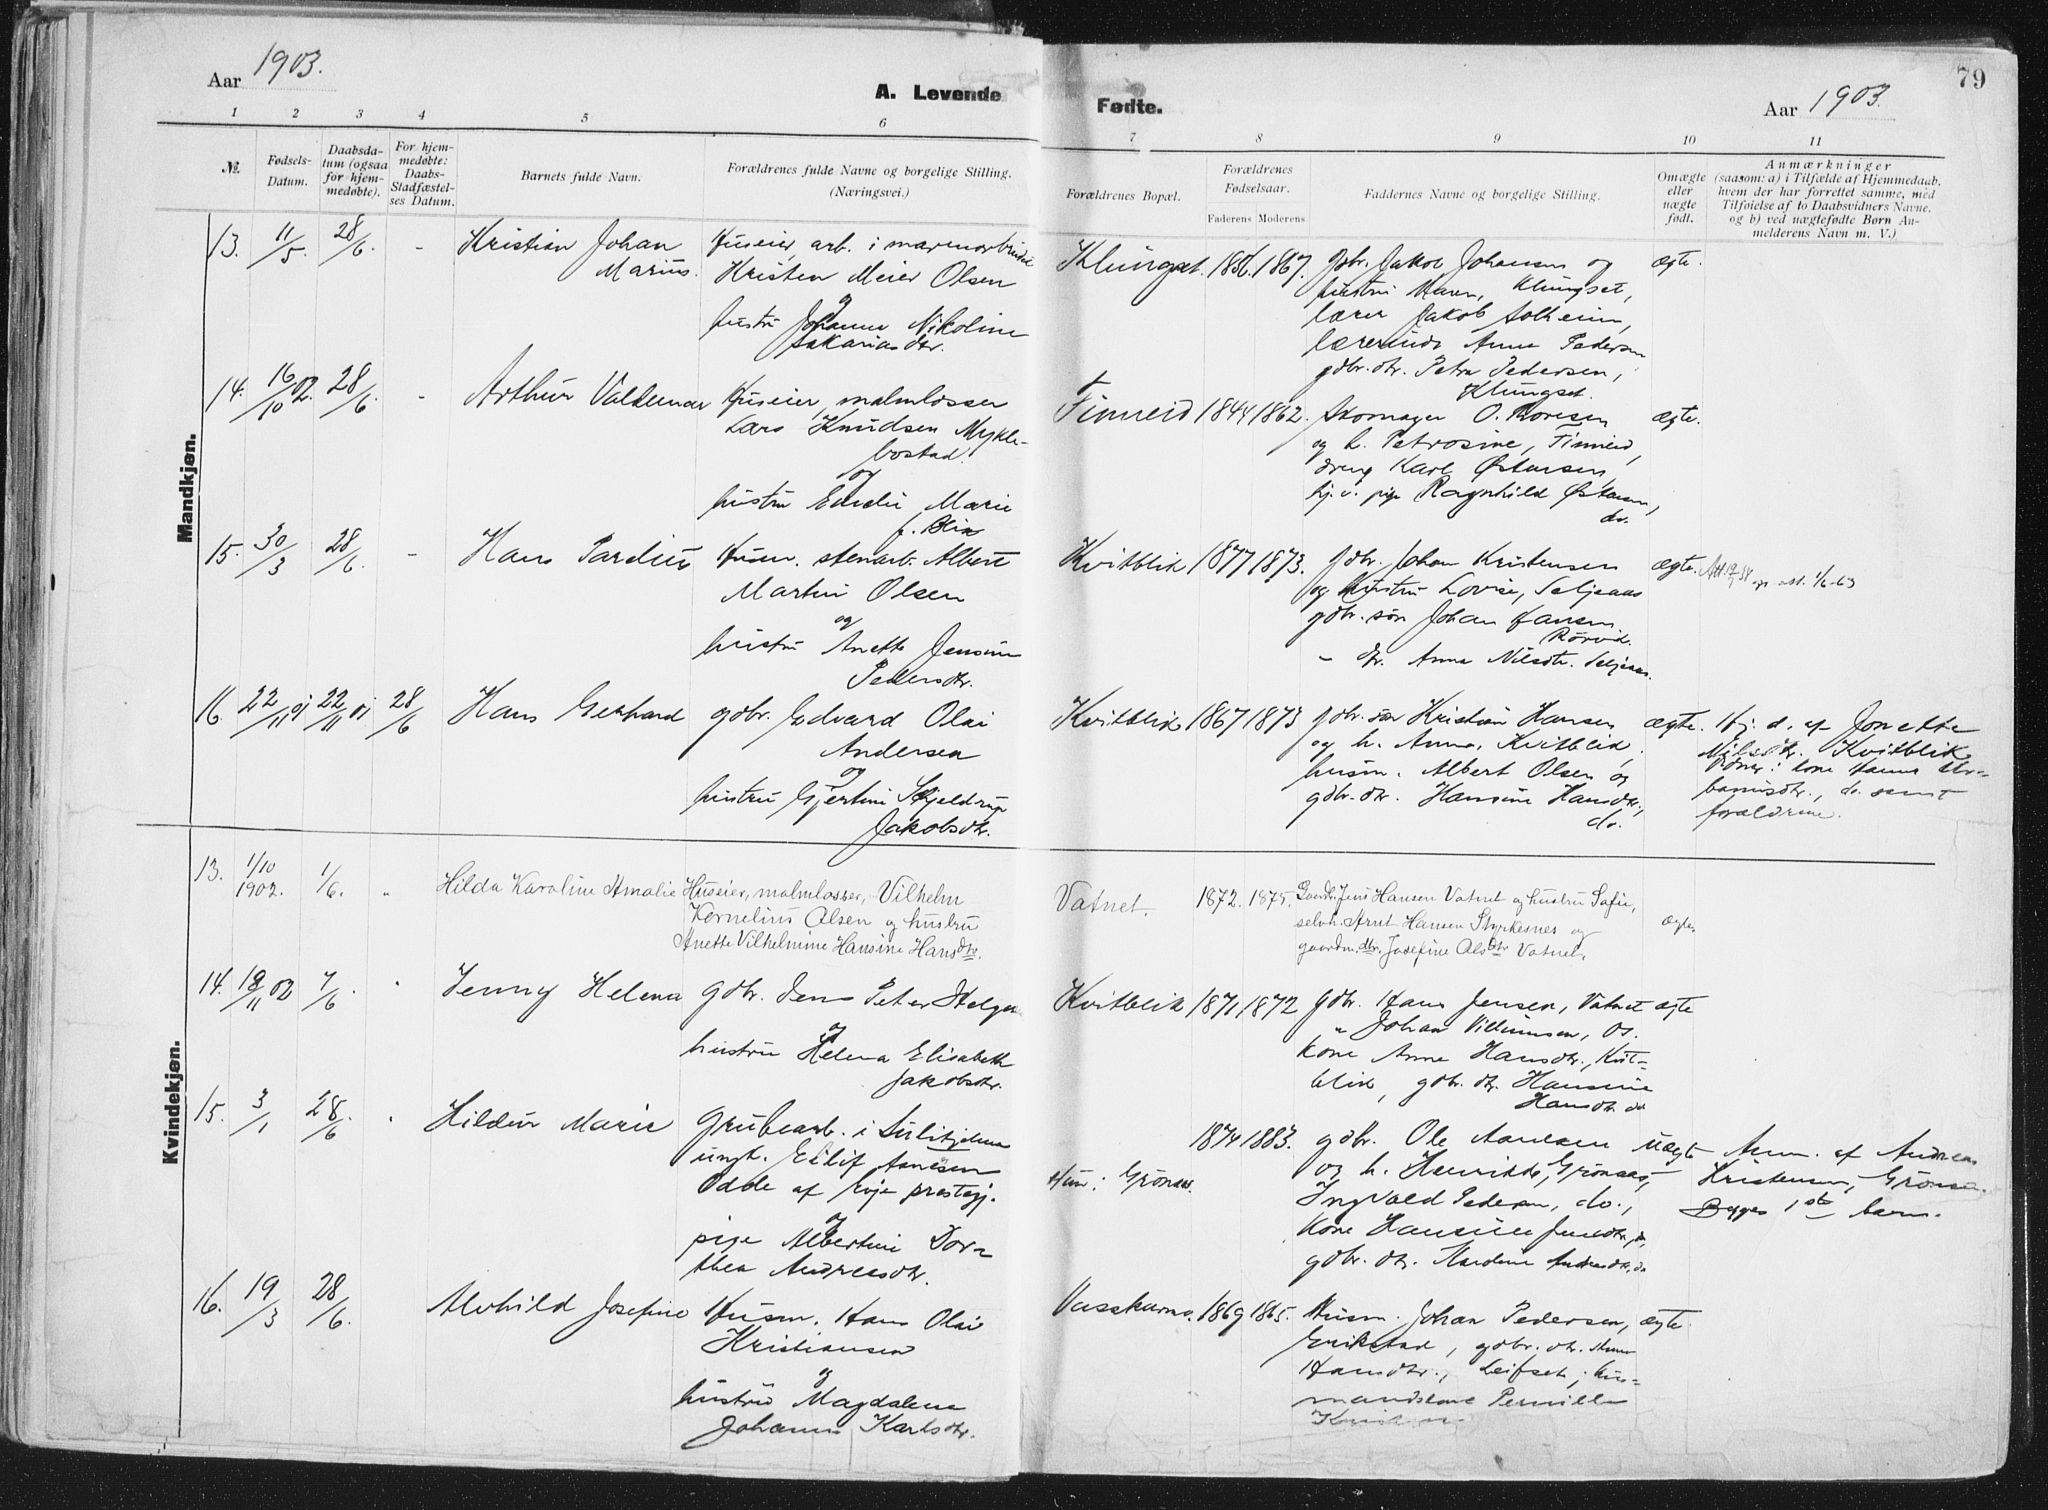 Aar 1903.
A. Levende
1 2 3 4 5 6
№.
Fødsels-
Datum.
Daabsda-
tum (ogsaa
for hjem-
medøbte).
For hjem-
medøbte:
Daabs-
Stadfæstel-
ses Datum.
Barnets fulde Navn.
Forældrenes fulde Navne og borgelige Stilling.
(Næringsvei.)
Mandkjøn.
13. 11/5 28/6 - Kristian Johan Huseier, arb. i
Marius. Kristen Meier Olsen
og
hustru Johanne Nikoline
Sakariasdtr.
14. 16/10 02. 28/6 - Arthur Valdemar Huseier, malmlosser
Lars Knudsen Mykle-
bostad
og
hustru Marie
f. Blix
15. 30/3 28/6 - Hans Pardius Husm. stenarb. Albert
Martin Olsen
og
hustru Anette Jensine
Pedersdtr.
16. 22/11 01 22/11 01 28/6 Hans Gerhard gdbr. Edvard Olai
Andersen
og
hustru Gjertine Skjeldrup
Jakobsdtr.
Kvindekjøn.
13. 1/10 1902. 1/6. " Hilda Karoline Amalie Huseier, malmlosser, Vilhelm
Kornelius Olsen og hustru
Anette Vilhelmine Hansine Hansdtr.
14. 19/11 02 7/6 " Jenny Helena gdbr. Jens Peter Helge
og
hustru Helena Elisabeth
Jakobsdtr.
15. 3/1 28/6 " Hildur Marie Grubearb. i Sulitjelma
ungk. Eilif Aanesen
Odde af Evje prestegj.
og
pige Albertine Dor-
thea Andreasdtr.
16. 19/3 28/6. Alvhild Josefine Husm. Hans Olai
Kristiansen
og
hustru Magdalena
Johanna Karlsdtr.
79
Fødte.
Aar 1903.
7 8 9 10 11
Forældrenes Bopæl.
Forældrenes
Fødselsaar.
Faderens Moderens
Faddernes Navne og borgelige Stilling.
Omægte
eller
uægte
født.
Anmærkninger
(saasom: a) i Tilfælde af Hjemmedaab,
hvem der har forrettet samme, med
Tilføielse af to Daabsvidners Navne.
og b) ved uægtefødte Børn An-
melderens Navn m. V.)
Klungset. 1856. 1867. Gdbr. Jakob Johansen og ægte.
hustru Maren, Klungset,
lærer Jakob Solheim,
lærerinde Anna Pedersen
gdbr. dtr. Petra Pedersen,
Klungset.
Finneid 1844 1862. Skomager O. Thoresen ægte.
og h. Petrosine, Finneid,
dreng Karl Østensen,
hj. v. pige Ragnhild Østensen,
do.
Kvitblik 1877 1873. Gdbr. Johan Kristensen ægte. Att. 19/7-58 att. 1/6-63
og hustru Lovise, Seljeaas
gdbr. søn Johan Hansen
Rørvik.
- dtr. Anna Nilsdtr. Seljeaas.
Kvitblik 1867 1873 Gdbr. søn Kristian Hansen ægte. Hj. d. af Jonette
og h. Anna, Kvitblik, Nilsdtr. Kvitblik
husm. Albert Olsen og Vidner: kone Hanna Ur-
gdbr. dtr. Hansine Hansdtr., banusdtr., do. samt
do. forældrene.
Vatnet. 1872. 1875. Gaardb. Jens Hansen Vatnet og hustru Sofie,
selvh. Arnt Hansen Styrkesnes og ægte,
gaardm. dtr. Josefine Olsdtr Vatnet.
Kvitblik 1871 1872 Gdbr. Hans Jensen, Vatnet ægte
" Johan Villumsen, do.
kone Anne Hansdtr., Kvit-
blik, gdbr. dtr. Hansine
Hansdtr. do
1874 1883. gdbr. Ole Aanesen uægte Anm. af Andreas
Hun: Grønaas. og h. Henrikke, Grønaas, Kristensen, Grønaas.
Ingvald Pedersen, do., Begges 1ste barn.
kone Hansine Jensdtr., do,
gdbr. dtr. Andreasdtr, do
1869 1865. Husm. Johan Pedersen, ægte.
Erikstad, gdbr. dtr. Anna
Hansdtr., Leifset, hus-
mandskone Pernille